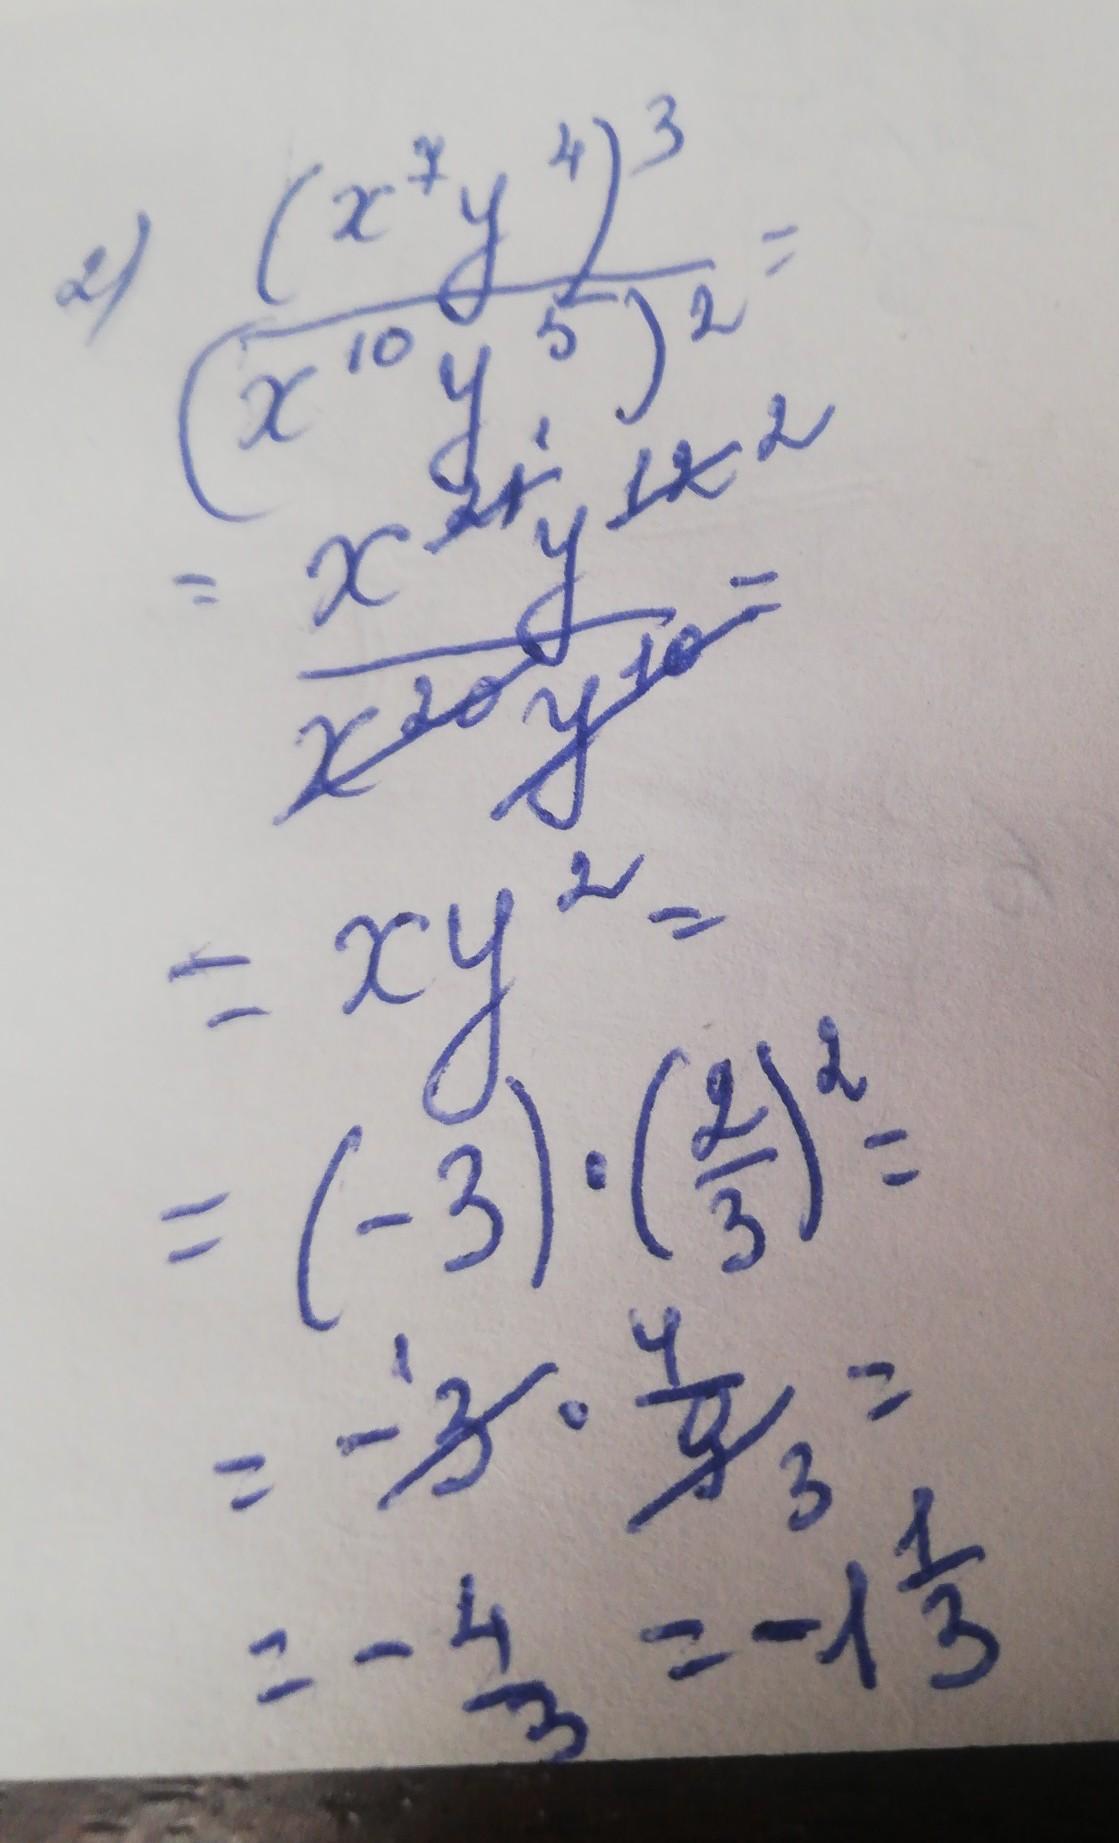 2) (x⁷y⁴)³ =
(x¹⁰y⁵)²
= x²¹ ¹ y¹² ² =
x²⁰ y¹⁰
= xy² =
= (-3) · (2/3)² =
= -3 ¹ · 4/9 3 =
= -4/3 = -1 1/3